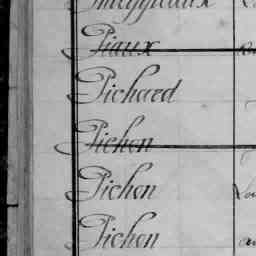 Piaux
Pichard
Pichon
Pichon
Pichon